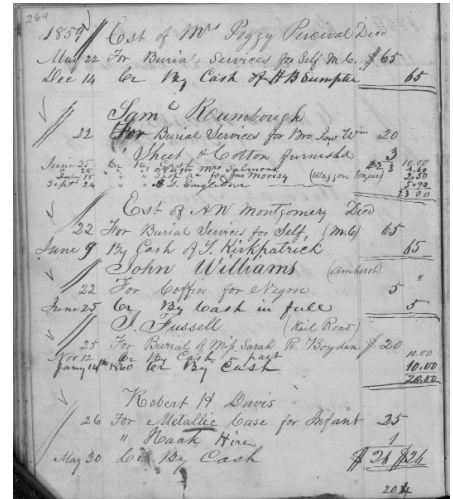 264
1859 Est of Mrs Peggy Percival Decd
May 22 For Burial Services for Self M.C. $ 65
Dec 14 Cr By Cash of A B Sumpter 65
Saml Roumbough
22 For Burial Services for Bro Wm 20
Sheet & Cotton furnishd 3
June 25 Cr By Cash 10.00
Mrs Salmond
July 15 (Waggon Tongue) 2.50
Sept 24 5.00
23 00
Est of A W Montgomery Decd
22 For Burial Services for Self (M.C) 65
June 9 By Cash of T. Kirkpatrick 65
John Williams (Amherst)
22 For Coffin for Negroe 5 "
June 25 Cr By Cash in full 5
J. Fussell (Rail Road)
25 For Burial of Miss Sarah R. Boyden $ 20
Nov 12 Cr By Cash in part 10.00
Jany 14th 1860 Cr By Cash 10.00
20.00
Robert H Davis
26 For Metallic Case for Infant 25
" Hack Hire 1
May 30 Cr By Cash $ 26 $26
204